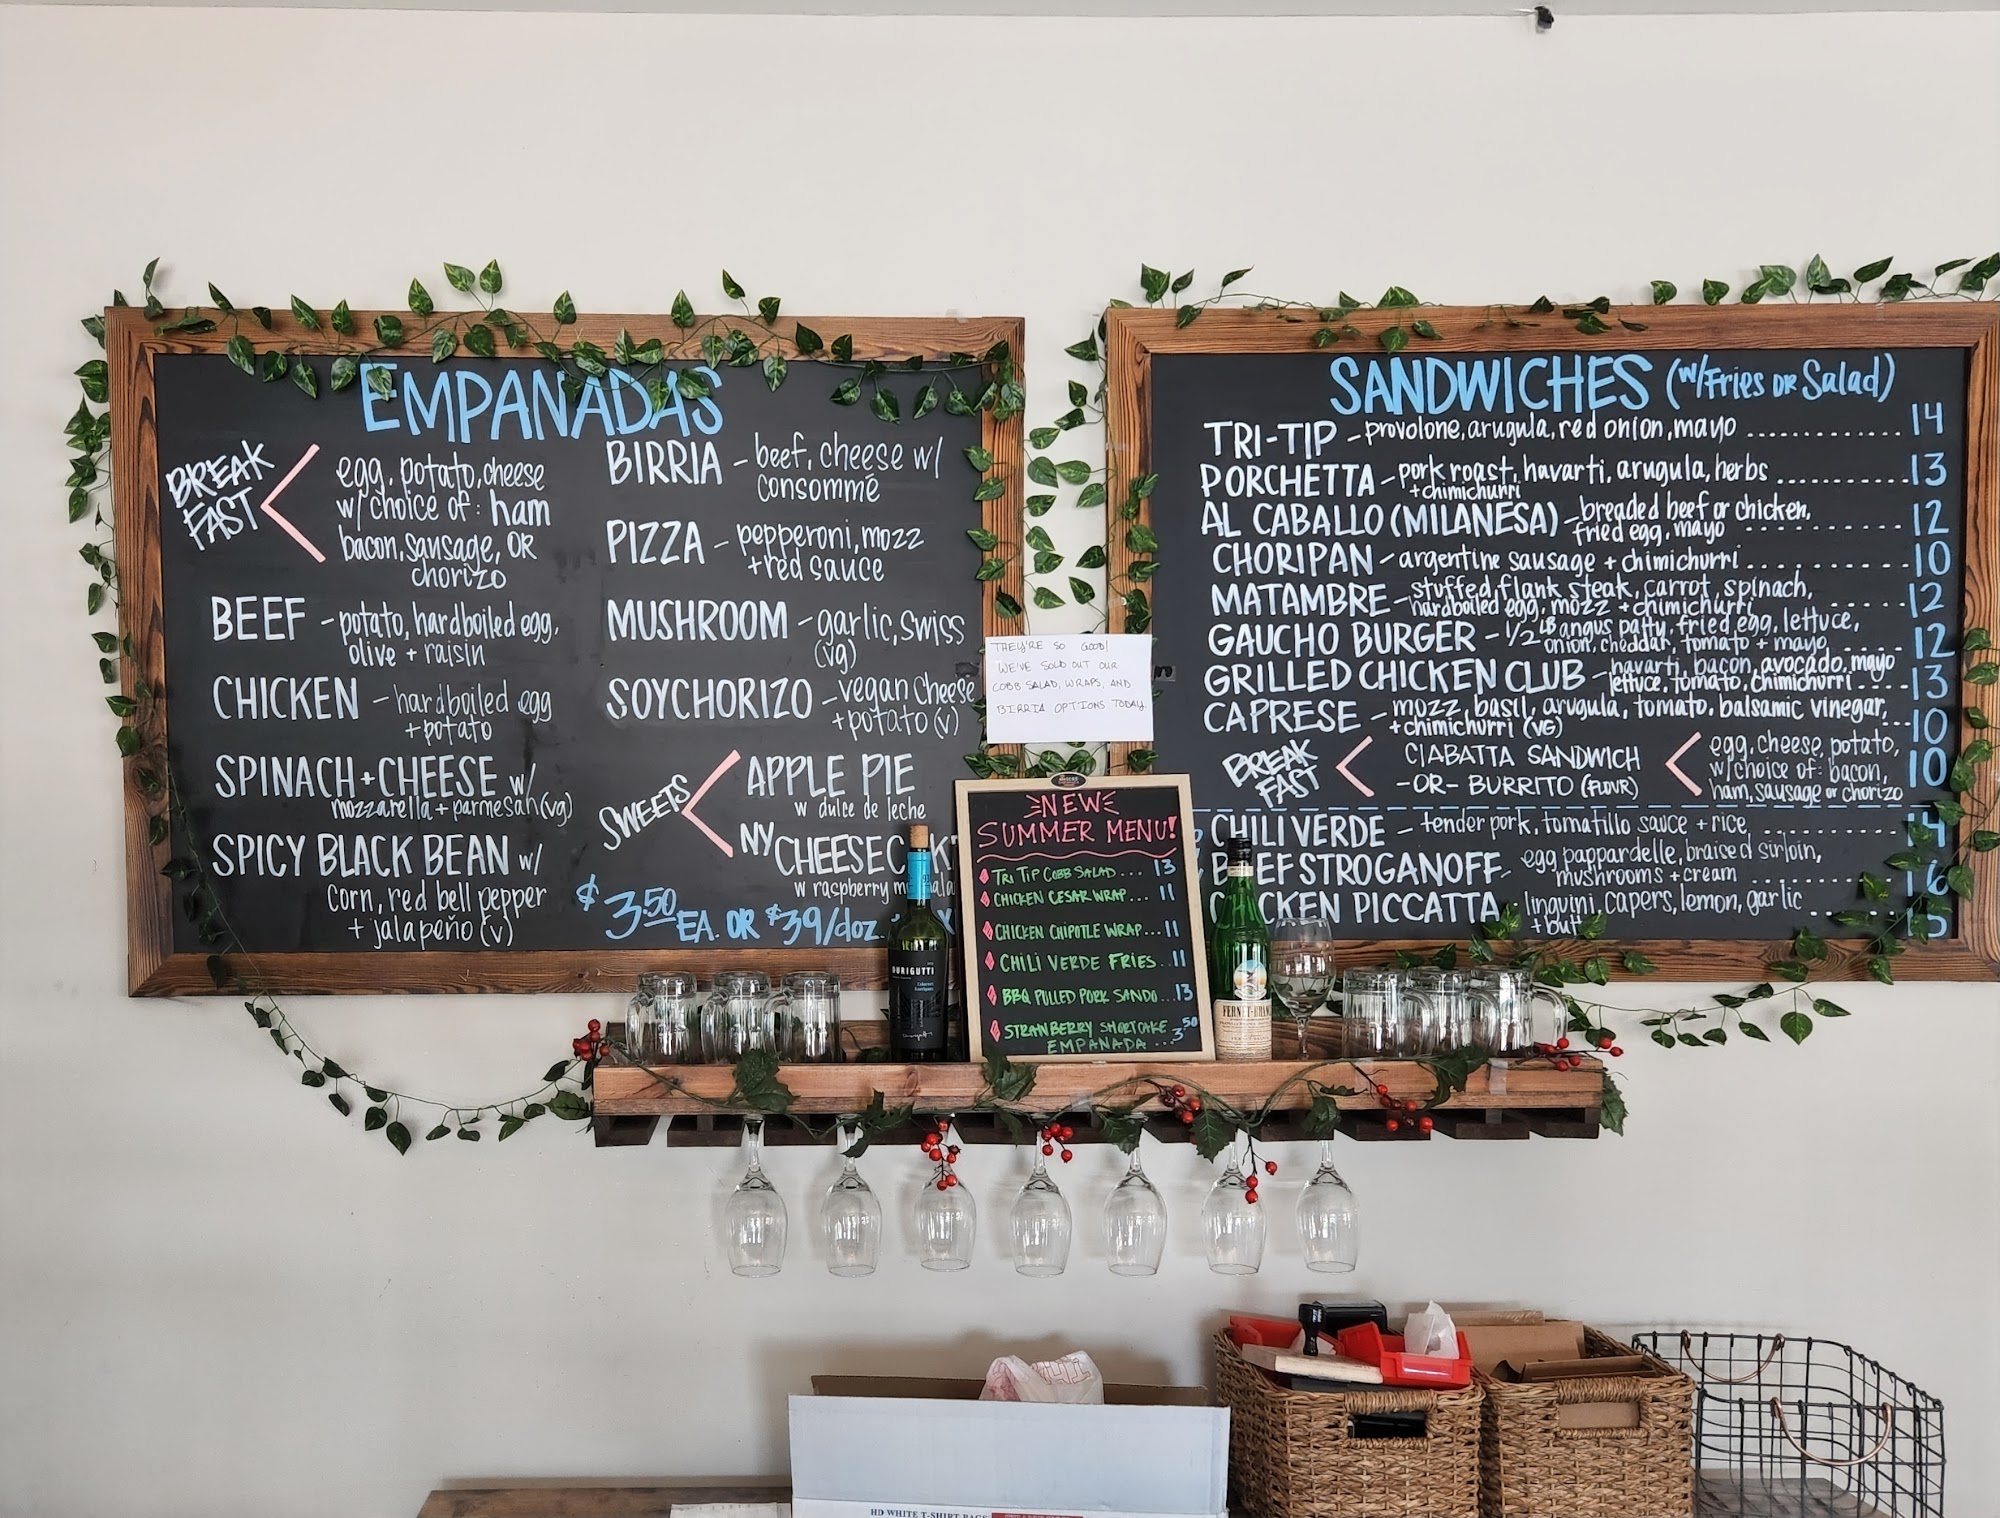 EMPANADAS
BREAK
FAST
egg, potato, cheese
w/ choice of: ham
bacon, sausage, OR
chorizo
BEEF - potato, hardboiled egg,
olive + raisin
CHICKEN - hardboiled egg
+ potato
SPINACH + CHEESE w/
mozzarella + parmesan (vg)
SPICY BLACK BEAN w/
corn, red bell pepper
+ jalapeño (v)
BIRRIA - beef, cheese w/
consommé
PIZZA - pepperoni, mozz
+ red sauce
MUSHROOM - garlic, swiss
(vg)
SOYCHORIZO - vegan cheese
+ potato (v)
SWEETS
APPLE PIE
w dulce de leche
NY CHEESECAKE
w raspberry
$3.50 EA. OR $39/doz.
THEY'RE SO GOOD!
WE'VE SOLD OUT OUR
COBB SALAD, WRAPS, AND
BIRRIA OPTIONS TODAY.
NEW
SUMMER MENU!
TRI TIP COBB SALAD... 13
CHICKEN CESAR WRAP... 11
CHICKEN CHIPOTLE WRAP... 11
CHILI VERDE FRIES.. 11
BBQ PULLED PORK SANDO... 13
STRAWBERRY SHORTCAKE
EMPANADA ... 3.50
SANDWICHES (w/Fries OR Salad)
TRI-TIP - provolone, arugula, red onion, mayo ............ 14
PORCHETTA - pork roast, havarti, arugula, herbs ............ 13
+ chimichurri
AL CABALLO (MILANESA) - breaded beef or chicken,
fried egg, mayo ............ 12
CHORIPAN - argentine sausage + chimichurri ............ 10
MATAMBRE - stuffed flank steak, carrot, spinach,
hardboiled egg, mozz + chimichurri ...... 12
GAUCHO BURGER - 1/2 LB angus patty, fried egg, lettuce,
onion, cheddar, tomato + mayo ..... 12
GRILLED CHICKEN CLUB - havarti, bacon, avocado, mayo
lettuce, tomato, chimichurri .... 13
CAPRESE - mozz, basil, arugula, tomato, balsamic vinegar,
+ chimichurri (VG) ... 10
BREAK
FAST
CIABATTA SANDWICH
-OR- BURRITO (FLOUR)
egg, cheese, potato,
w/ choice of: bacon,
ham, sausage or chorizo
10
CHILI VERDE - tender pork, tomatillo sauce + rice ............ 14
BEEF STROGANOFF - egg pappardelle, braised sirloin,
mushrooms + cream ............ 16
CHICKEN PICCATTA - linguini, capers, lemon, garlic
+ butt ...... 15
DURIGUTTI
FERNET-BRANCA
HD WHITE T-SHIRT BAGS